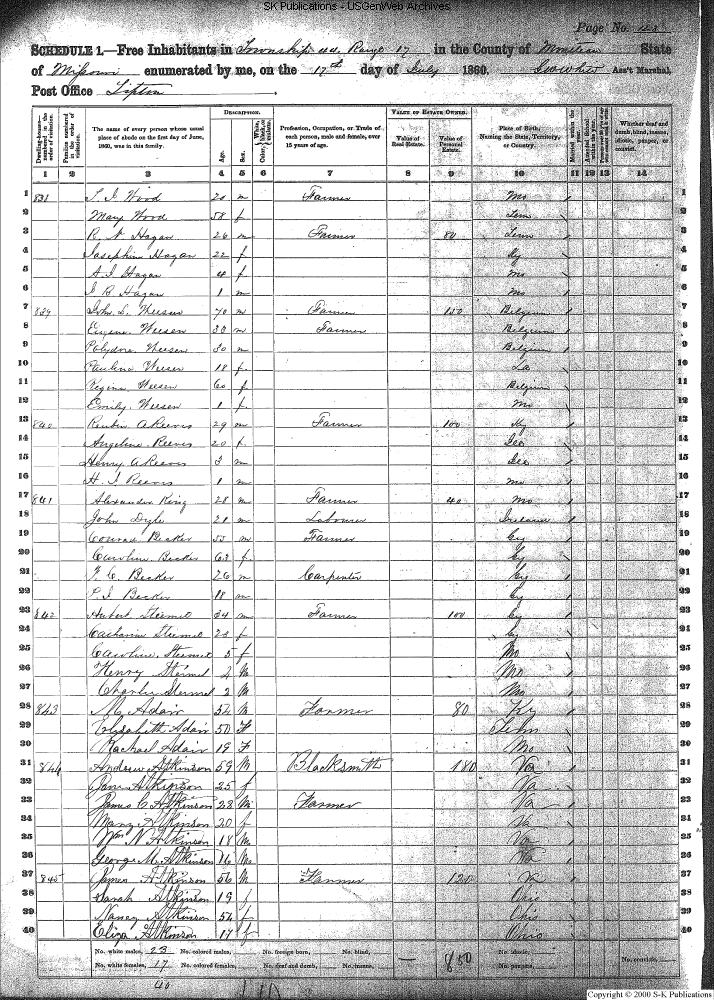 SK Publications - USGenWeb Archives
Page No.
SCHEDULE 1.—Free Inhabitants in Township 44 Range 17 in the County of Moniteau State
of Missouri enumerated by me, on the 17th day of July 1860. Geo White Ass't Marshal,
Post Office Tipton.
Dwelling-houses—numbered in the order of visitation. Families numbered in the order of visitation. The name of every person whose usual place of abode on the first day of June, 1860, was in this family. DESCRIPTION. Age. Sex. Color, White, black, or mulatto. Profession, Occupation, or Trade of each person, male and female, over 15 years of age. VALUE OF ESTATE OWNED. Value of Real Estate. Value of Personal Estate. Place of Birth, Naming the State, Territory, or Country. Married within the year. Attended School within the year. Whether deaf and dumb, blind, insane, idiotic, pauper, or convict.
1 2 3 4 5 6 7 8 9 10 11 12 13 14
1 Wood m Farmer Mo 1
2 Mary Wood 58 f Tenn 2
3 R. N. Hagan 26 m Farmer 80 Tenn 3
4 Josephine Hagan 22 f Ky 4
5 A. J. Hagan 4 f Mo 5
6 Hagan 1 m Mo 6
7 839 John L. Weesen 70 m Farmer 150 Belgium 7
8 Eugene Weesen 30 m Farmer Belgium 8
9 Polydore Weesen 30 m Belgium 9
10 Pauline Weesen 18 f La 10
11 Regina Weesen 60 f Belgium 11
12 Emily Weesen 1 f Mo 12
13 840 Reuben A Reeves 29 m Farmer 100 Ky 13
14 Angeline Reeves 20 f Geo 14
15 Henry A Reeves 3 m Geo 15
16 H. J. Reeves 1 m Mo 16
17 841 Alexander King 28 m Farmer 40 Mo 17
18 John Dyle 21 m Labourer Ireland 18
19 Conrad Becker 55 m Farmer 19
20 Caroline Becker 63 f 20
21 Becker 26 m Carpenter 21
22 Becker 18 m 22
23 842 Hubert Stermel 34 m Farmer 100 23
24 Catharine Stermel f
25 Caroline Stermel 5 f Mo 25
26 Henry Stermel M Mo 26
27 Charles Stermel 2 M Mo 27
28 843 M. Adair 54 M Farmer 80 Ky 28
29 Elizabeth Adair 50 F Tenn 29
30 Rachael Adair 19 F Mo 30
31 844 Andrew Atkinson 59 M Blacksmith 180 Va 31
32 Jane Atkinson 25 f Va
33 James C Atkinson 22 M Farmer Va
34 Mary Atkinson 20 f Va
35 Wm N Atkinson 18 M Va
36 George M. Atkinson 16 M Va
37 845 James Atkinson 56 M Farmer 120 Va 37
38 Sarah Atkinson 19 f Ohio 38
39 Nancy Atkinson 54 f Ohio
40 Eliza Atkinson 17 f Ohio 40
No. white males, 23 No. colored males, No. foreign born, No. blind,
No. white females, 17 No. colored females, No. deaf and dumb, No. insane, 850 No. idiotic, No. paupers, No. convicts,
40
Copyright © 2000 S-K Publications